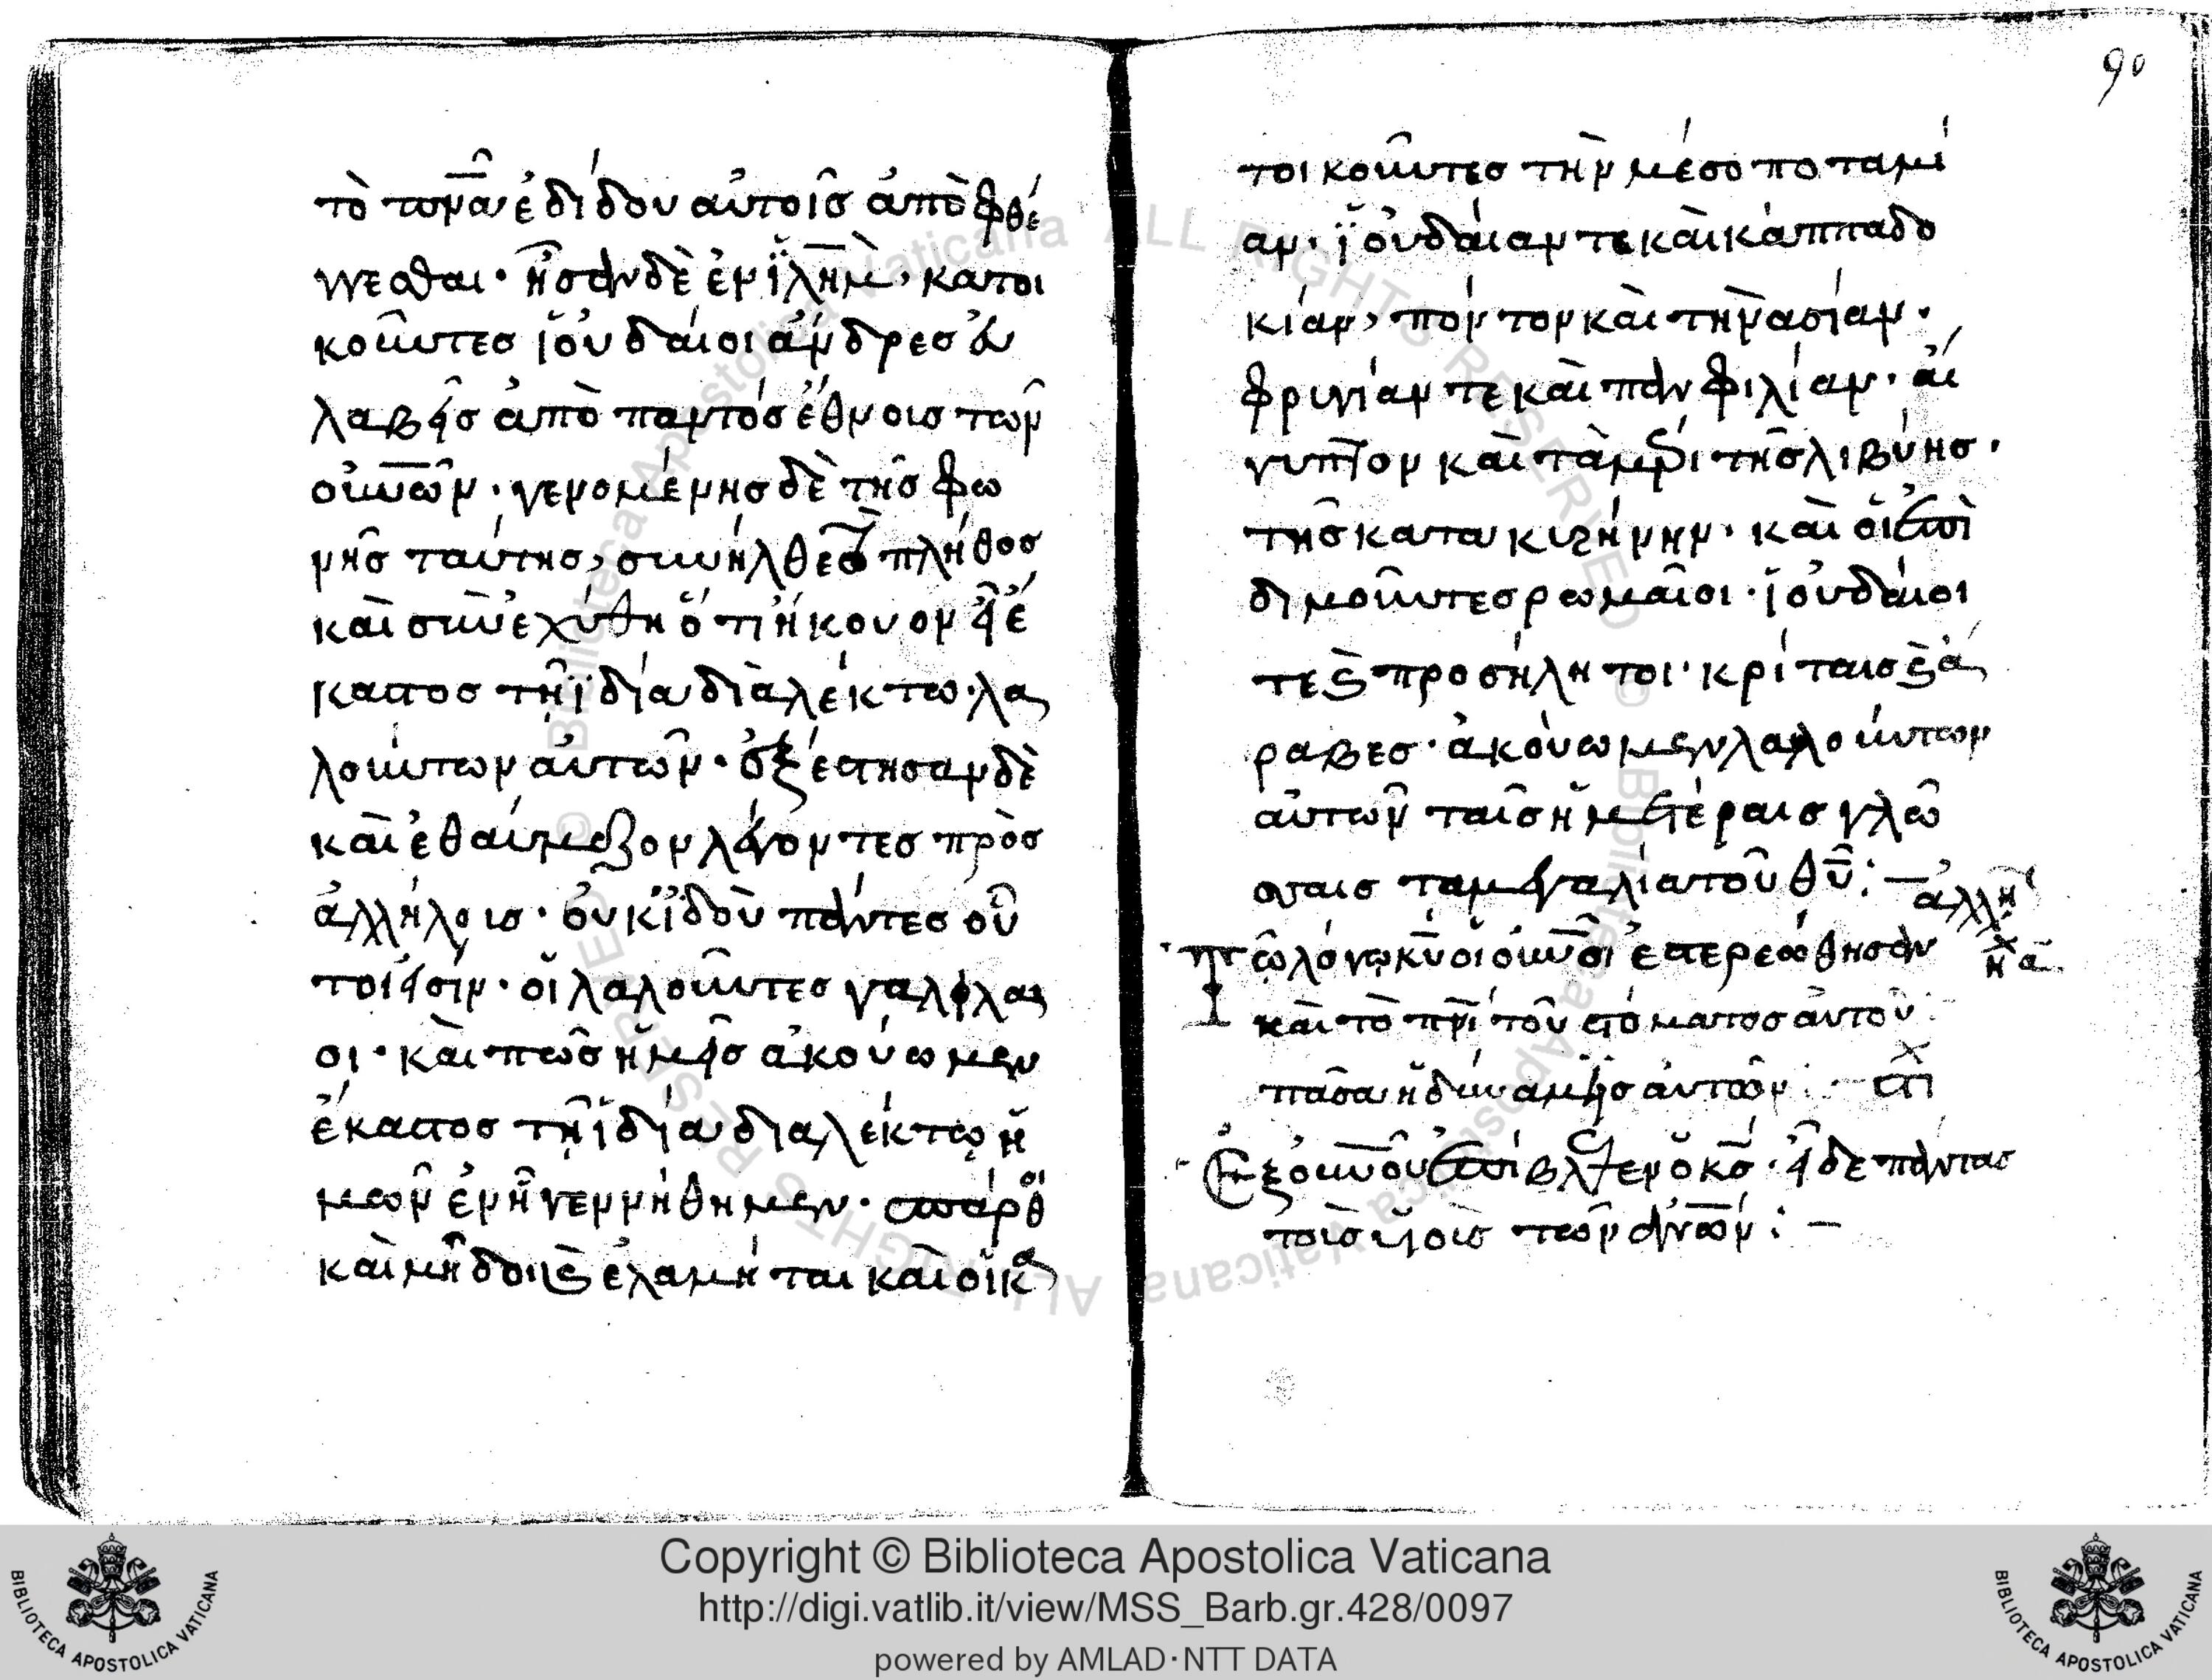 τὸ π̅ν̅α̅ ἐδίδου αὐτοῖς ἀποφθέ
γγεσθαι· ἦσαν δὲ ἐν ϊ̅λ̅η̅μ̅, κατοι
κοῦντες ϊουδαίοι ἄνδρες εὐ
λαβεῖς ἀπὸ παντὸς ἔθνοις τῶν
οὐ̅ν̅ῶν· γενομένης δὲ τῆς φω
νῆς ταύτης, συνήλθε τὸ πλήθος
καὶ συνεχύθη ὅτι ἤκουον εἷς ἕ
καστος τῆ ϊδία διαλέκτω· λα
λούντων αὐτῶν· ἐξέστησαν δὲ
καὶ ἐθαύμαζον λέγοντες πρὸς
ἀλλήλοις· οὐκ ϊδοὺ πάντες οὗ
τοί εἰσίν· οἱ λαλοῦντες γαλιλαι
οι· καὶ πῶς ἡμεῖς ἀκούωμεν
ἕκαστος τῆ ϊδία διαλέκτω ἡ
μῶν ἐν ἧ γεννήθημεν· παρθ
καὶ μῆδοι καὶ ἐλαμήται καὶ οἱ κα
90
τοικοῦντες τὴν μέσοποταμί
αν· ϊουδαίαν τε καὶ κάππαδο
κίαν, πόντον καὶ τὴν ἀσίαν·
φρυγίαν τε καὶ πανφιλίαν· αἴ
γυπτον καὶ τὰ μέρι τῆς λιβύης·
τῆς κατα κυρήνην· καὶ οἱ ἐπι
διμοῦντες ρωμαῖοι· ϊουδαίοι
τε καὶ προσήλητοι· κρίταις καὶ ἄ
ραβες· ἀκούωμεν λαλούντων
αὐτῶν ταῖς ἡμετέραις γλώ
σσαις τα μεγαλία τοῦ θ̅υ̅:— ἀλλη
τῶ λόγω κ̅υ̅ οἱ οὐ̅ν̅οι ἐστερεώθησαν
καὶ τὸ π̅ν̅ι τοῦ στόματος αὐτοῦ
πᾶσα ἡ δύναμης αὐτῶν:— στι
Ἐξ οὐ̅ν̅οῦ ἐπίβλεψεν ὁ κ̅ς̅· εἶδε πάντας
τοὺς υἱοὺς τῶν ἀ̅ν̅ῶν:—
Copyright © Biblioteca Apostolica Vaticana
http://digi.vatlib.it/view/MSS_Barb.gr.428/0097
powered by AMLAD·NTT DATA
BIBLIOTECA APOSTOLICA VATICANA
BIBLIOTECA APOSTOLICA VATICANA